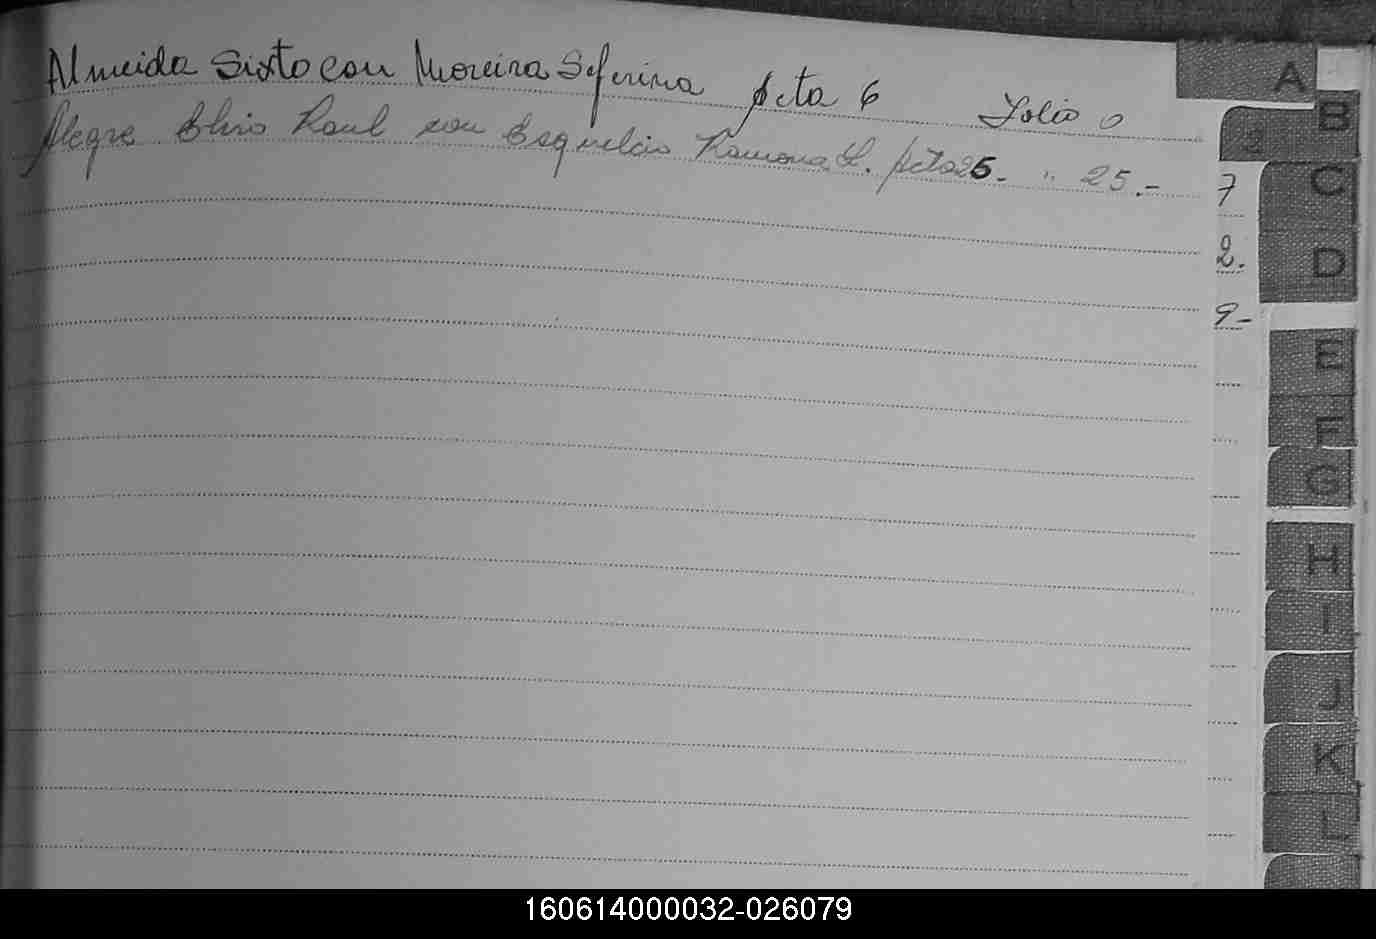 Almeida Sixto con Moreira Seferina Acta 6 Folio 6
Alegre Elvio Raul con Esquelcio Ramona L. Acta 25.- " 25.-
7
2.
9-
A
B
C
D
E
F
G
H
I
J
K
L
160614000032-026079